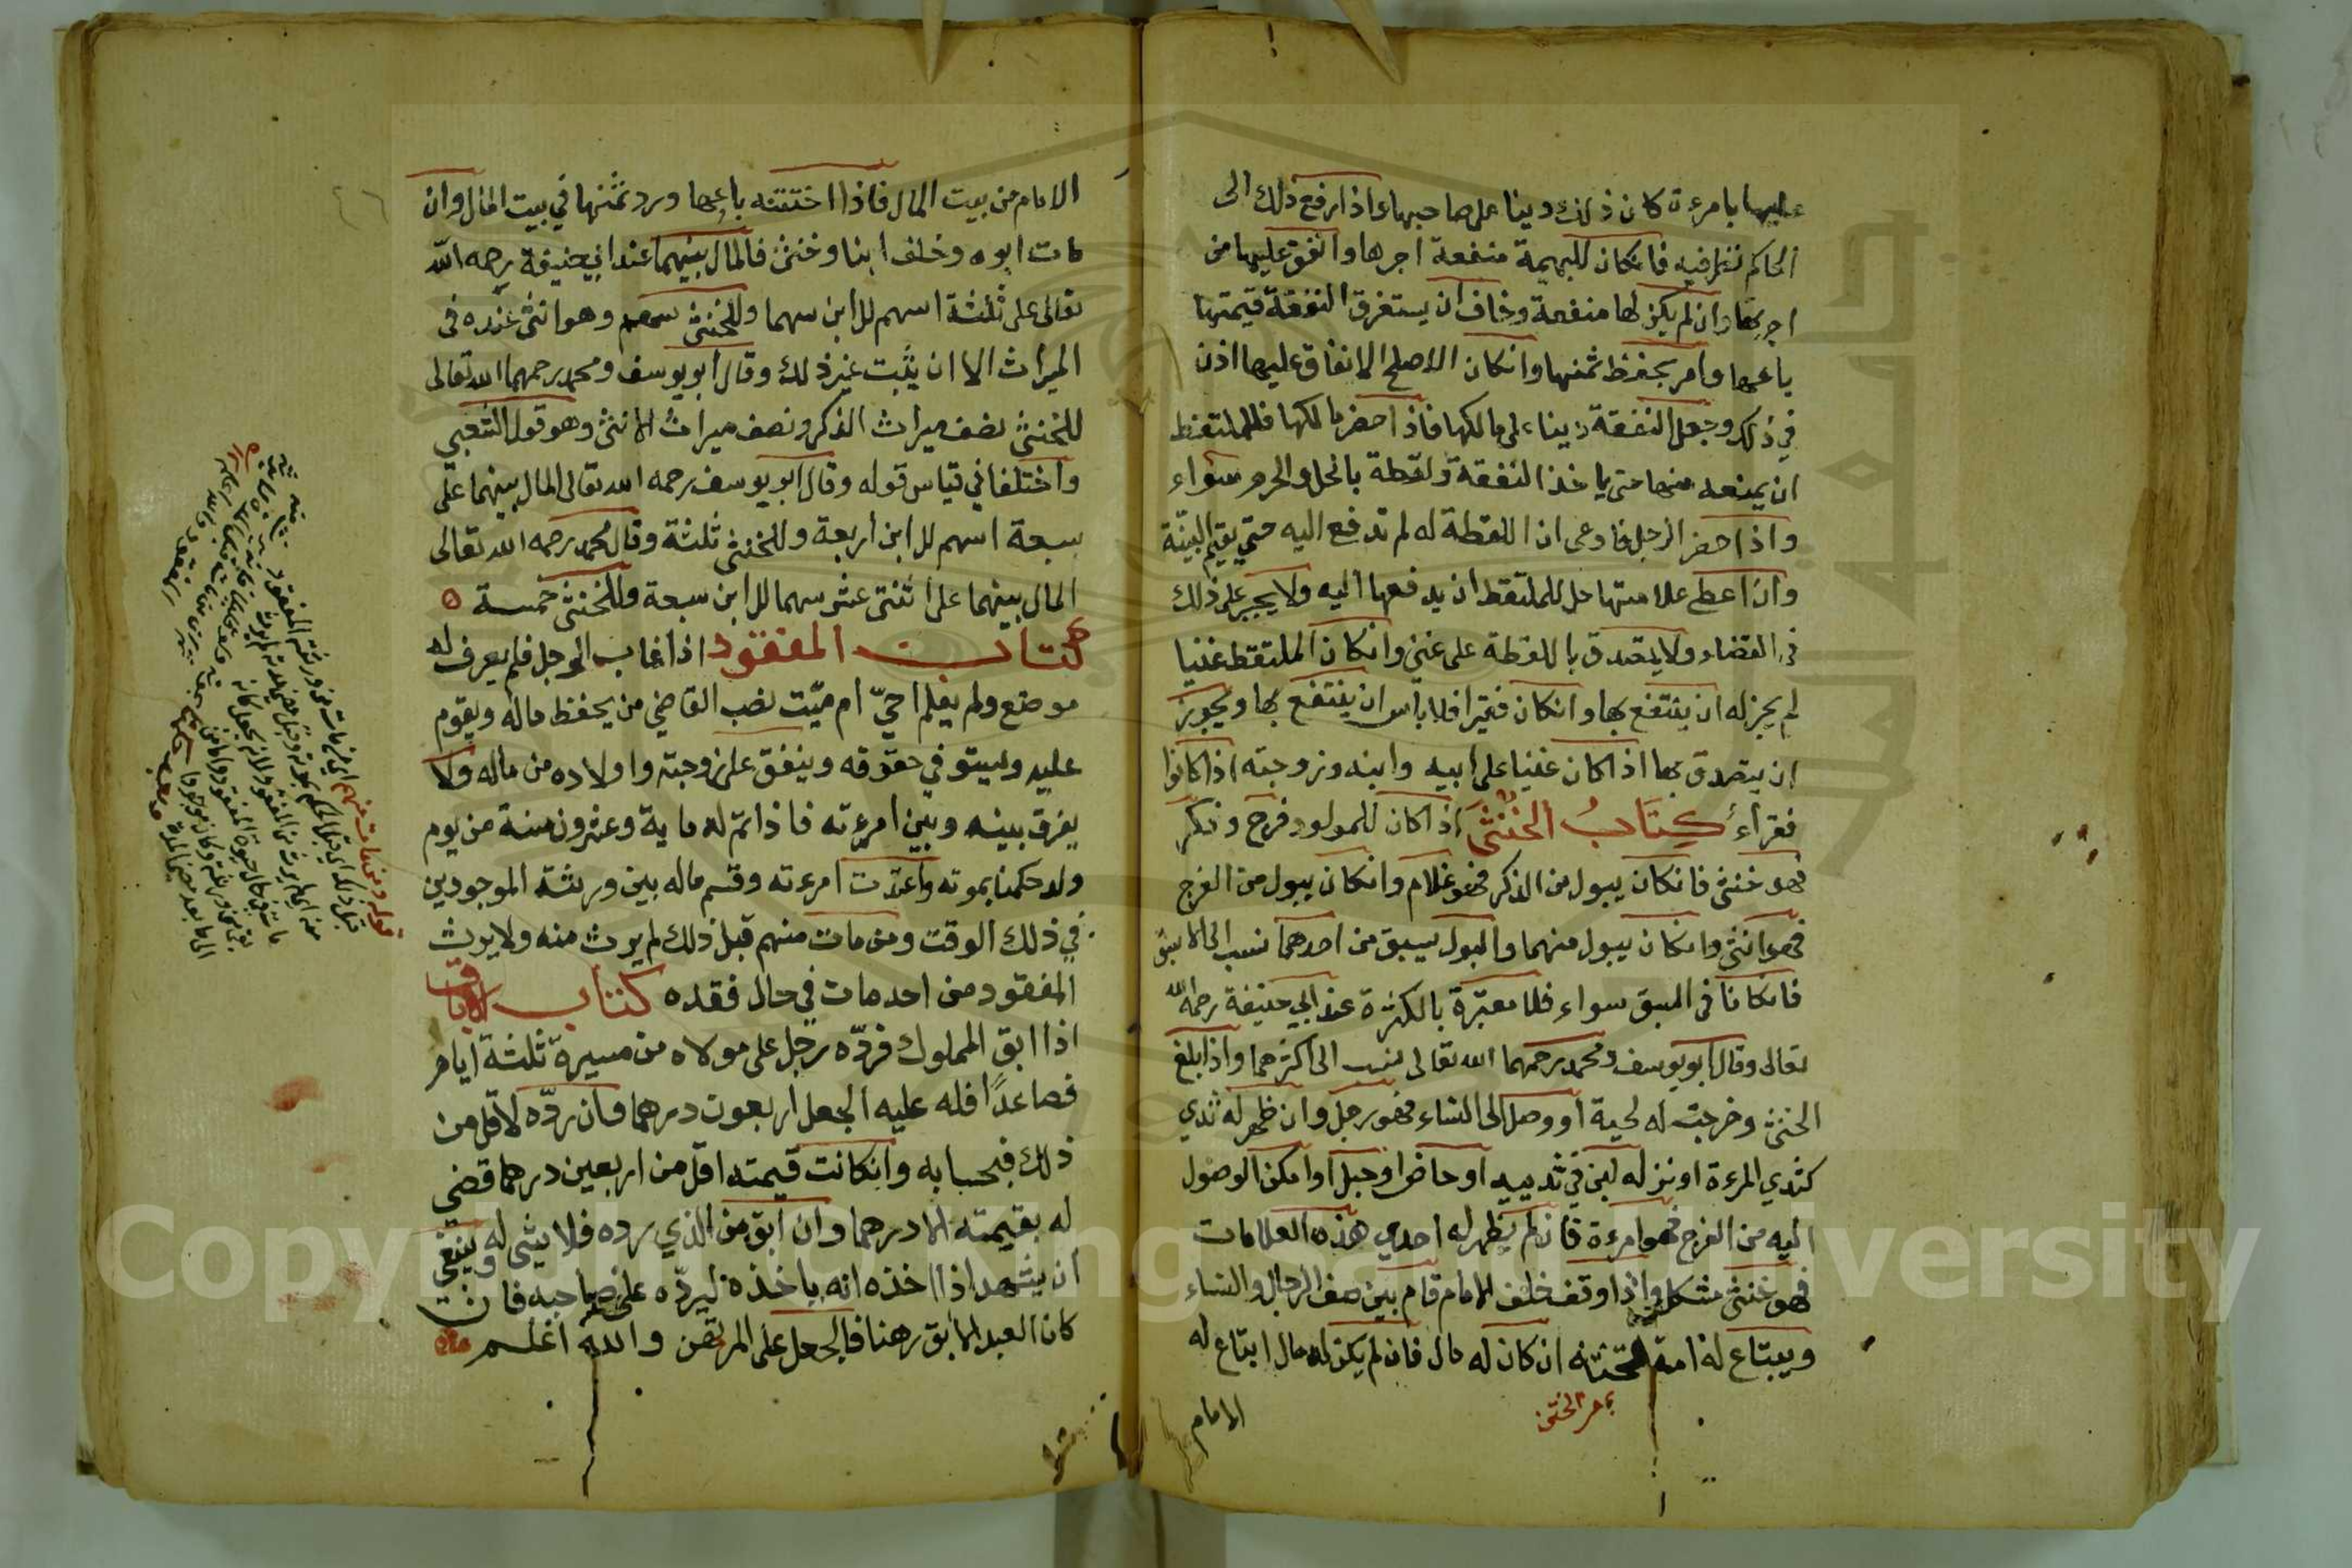 عليها بامرءة كان ذلك دينا على صاحبها واذا رفع ذلك الى
الحاكم نظر فيه فانكان للبهيمة منفعة اجرها وانفق عليها من
اجرتها وان لم يكن لها منفعة وخاف ان يستغرق النفقة قيمتها
باعها وامر بحفظ ثمنها وانكان الاصلح الانفاق عليها اذن
في ذلك وجعل النفقة دينا على مالكها فاذا حضر مالكها فللملتقط
ان يمنعه منها حتى ياخذ النفقة ولقطة بالحل والحرم سواء
واذا حضر الرجل فادعى ان اللقطة له لم تدفع اليه حتى يقيم البينة
وان اعطى علامتها حل للملتقط ان يدفعها اليه ولا يجبر على ذلك
في القضاء ولا يتصدق باللقطة على غني وانكان الملتقط غنيا
لم يجز له ان ينتفع بها وانكان فقيرا فلا باس ان ينتفع بها ويجوز
ان يتصدق بها اذا كان غنيا على ابيه وابنه وزوجته اذا كانوا
فقراء كِتَابُ الخُنْثَى اذا كان للمولود فرج وذكر
فهو خنثى فانكان يبول من الذكر فهو غلام وانكان يبول من الفرج
فهو انثى وانكان يبول منهما والبول يسبق من احدهما نسب الى الاسبق
فانكانا في السبق سواء فلا معتبرة بالكثرة عند ابي حنيفة رحمه الله
تعالى وقال ابو يوسف ومحمد رحمهما الله تعالى ينسب الى اكثرهما واذا بلغ
الخنثى وخرجت له لحية او وصل الى النساء فهو رجل وان ظهر له ثدي
كثدي المرءة او نزل له لبن في ثدييه او حاض او حبل او امكن الوصول
اليه من الفرج فهو امرءة فان لم يظهر له احدى هذه العلامات
فهو خنثى مشكل واذا وقف خلف الامام قام بين صف الرجال والنساء
ويبتاع له امة تختنه ان كان له مال فان لم يكن له مال ابتاع له
الامام
الامام من بيت المال فاذا اختنته باعها ورد ثمنها في بيت المال وان
مات ابوه وخلف ابنا وخنثى فالمال بينهما عند ابي حنيفة رحمه الله
تعالى على ثلثة اسهم للابن سهما وللخنثى سهم وهو انثى عنده في
الميراث الا ان يثبت غير ذلك وقال ابو يوسف ومحمد رحمهما الله تعالى
للخنثى نصف ميراث الذكر ونصف ميراث الانثى وهو قول الشعبي
واختلفا في قياس قوله وقال ابو يوسف رحمه الله تعالى المال بينهما على
سبعة اسهم للابن اربعة وللخنثى ثلثة وقال محمد رحمه الله تعالى
المال بينهما على اثنتى عشر سهما للابن سبعة وللخنثى خمسة
كتاب المفقود اذا غاب الرجل فلم يعرف له
موضع ولم يعلم احيّ ام ميّت نصب القاضي من يحفظ ماله ويقوم
عليه ويستوفي حقوقه وينفق على زوجته واولاده من ماله ولا
يفرق بينه وبين امرءته فاذا تم له ماية وعشرون سنة من يوم
ولد حكمنا بموته واعتدت امرءته وقسم ماله بين ورثته الموجودين
في ذلك الوقت ومن مات منهم قبل ذلك لم يرث منه ولا يرث
المفقود من احد مات في حال فقده كتاب الاباق
اذا ابق المملوك فردّه رجل على مولاه من مسيرة ثلثة ايام
فصاعدًا فله عليه الجعل اربعون درهما وان ردّه لاقل من
ذلك فبحسابه وانكانت قيمته اقل من اربعين درهما قضي
له بقيمته الا درهما وان ابق من الذي رده فلا شي له وينبغي
ان يشهد اذا اخذه انه ياخذه ليردّه على صاحبه فان
كان العبد الابق رهنا فالجعل على المرتهن والله اعلم